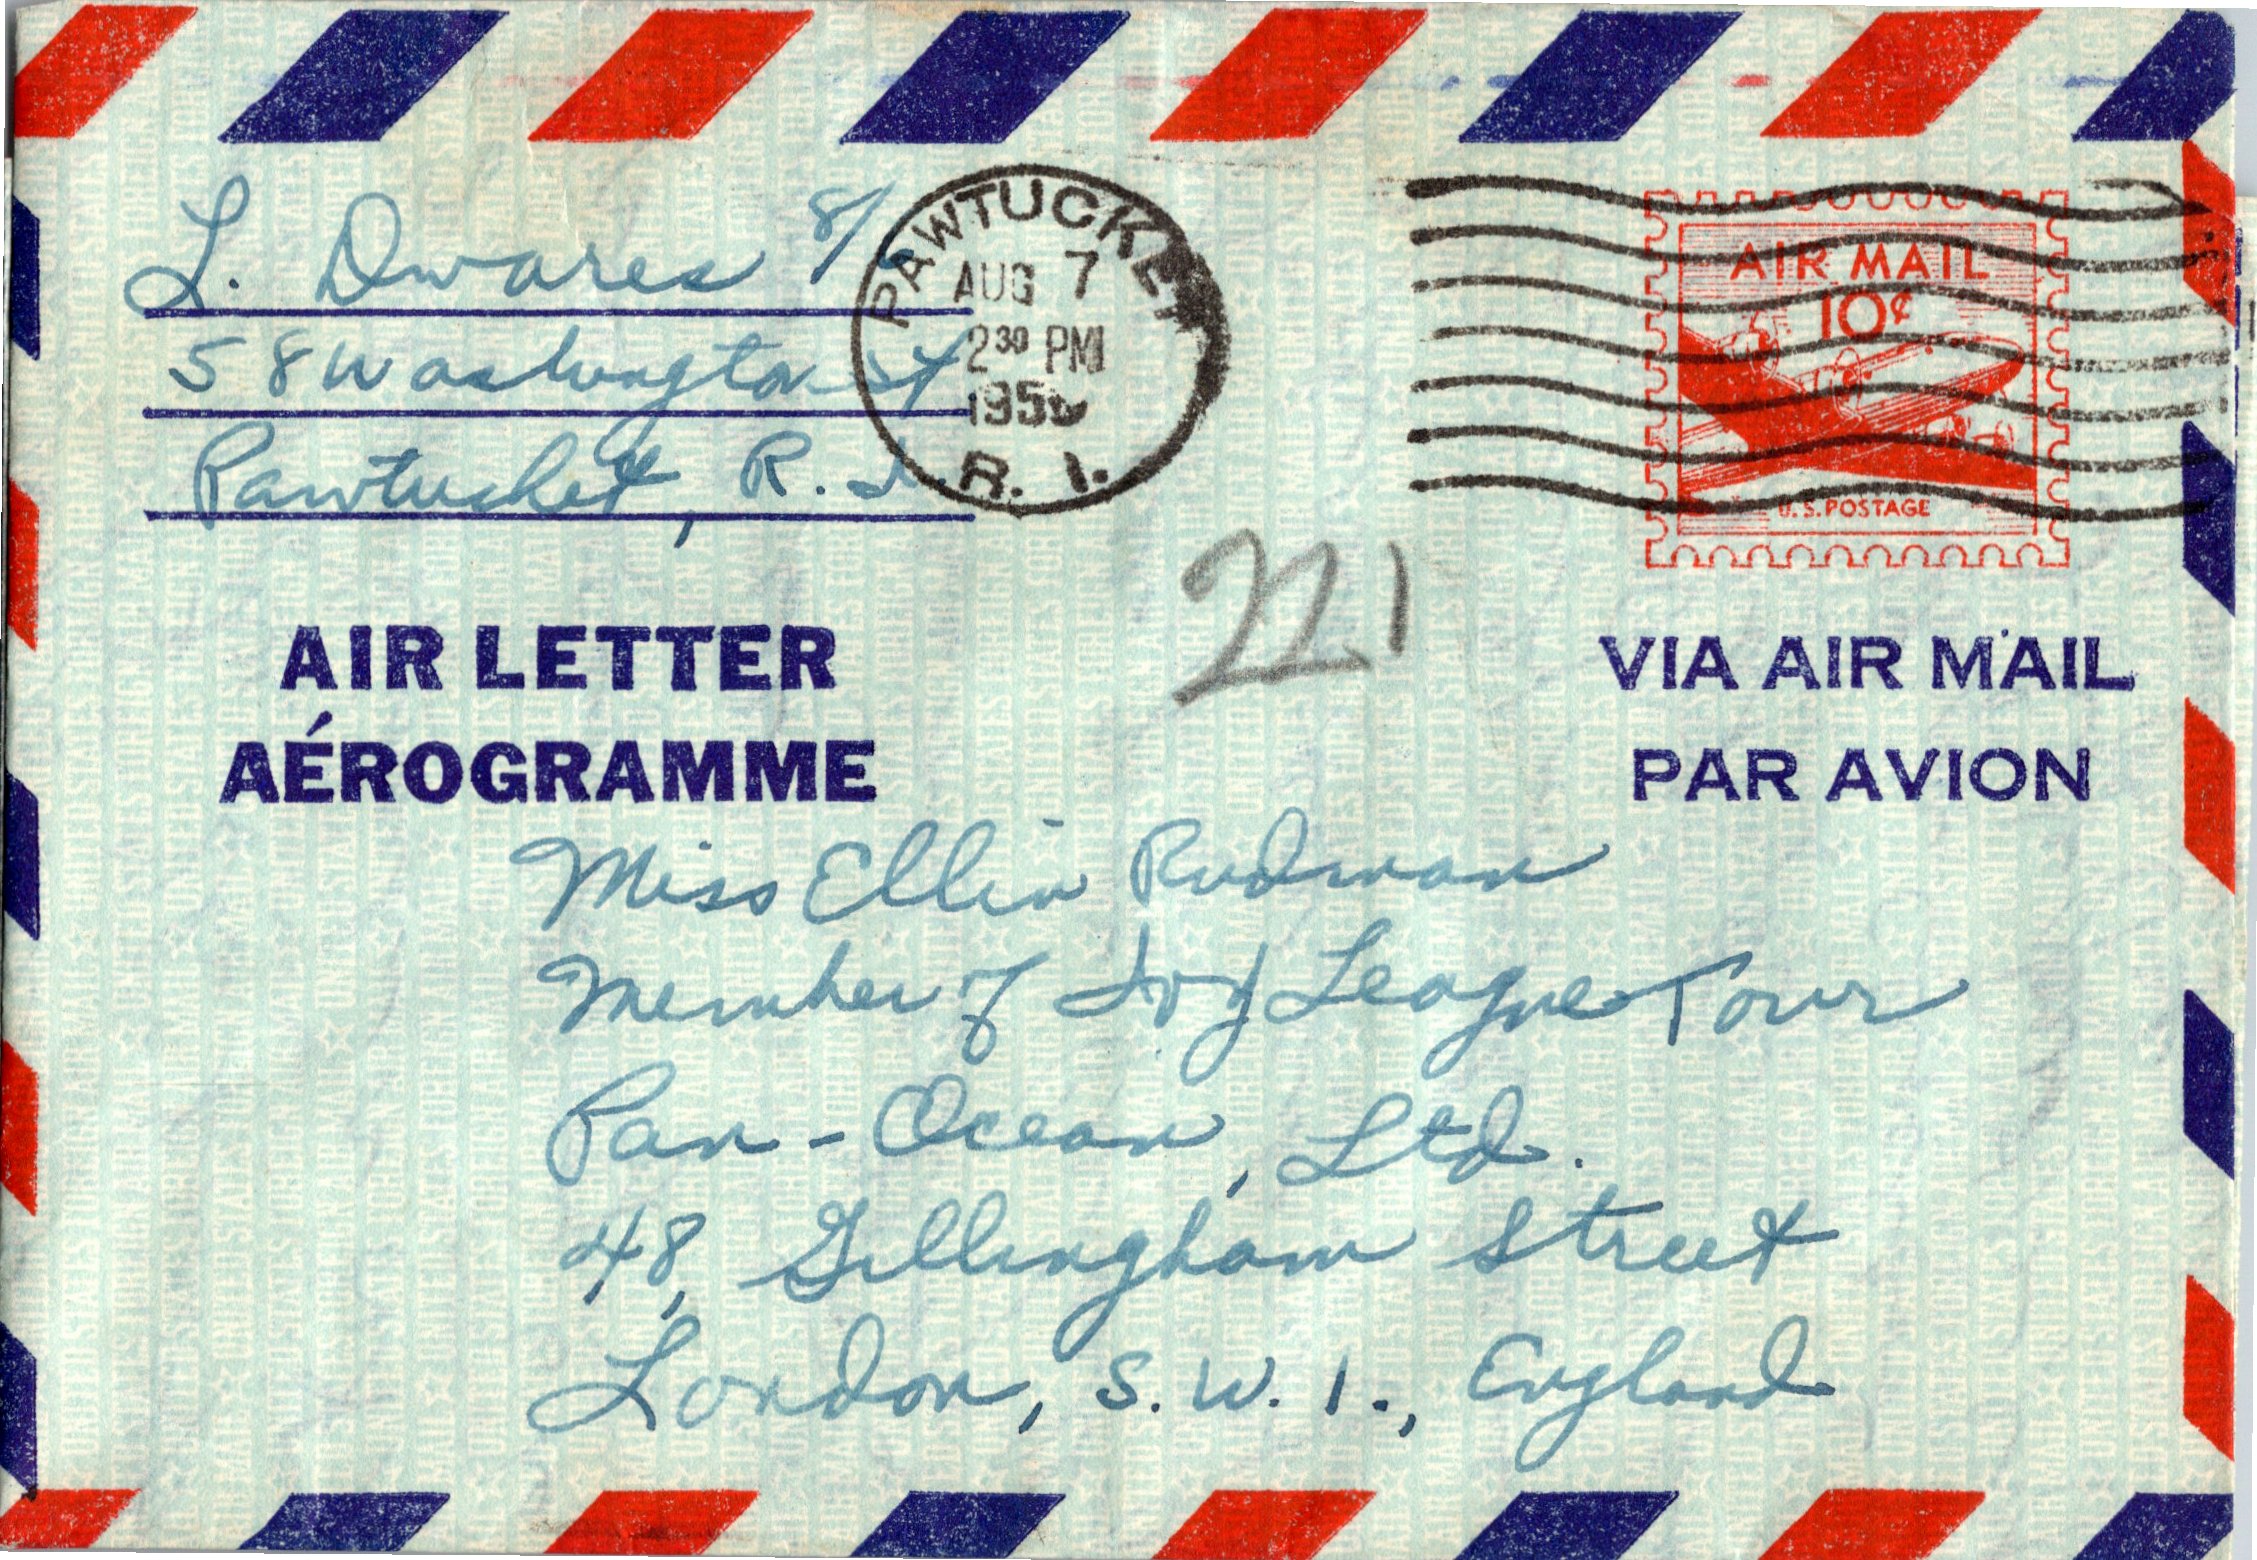 L. Dwares 8/6
58 Washington St
Pawtucket, R.I.
PAWTUCKET
AUG 7
2 30 PM
R. I.
AIR MAIL
10¢
U.S. POSTAGE
221
AIR LETTER
AÉROGRAMME
VIA AIR MAIL
PAR AVION
Miss Ellin Rudman
Member of Ivy League Tour
Pan-Ocean, Ltd.
48, Gillingham Street
London, S.W. 1., England